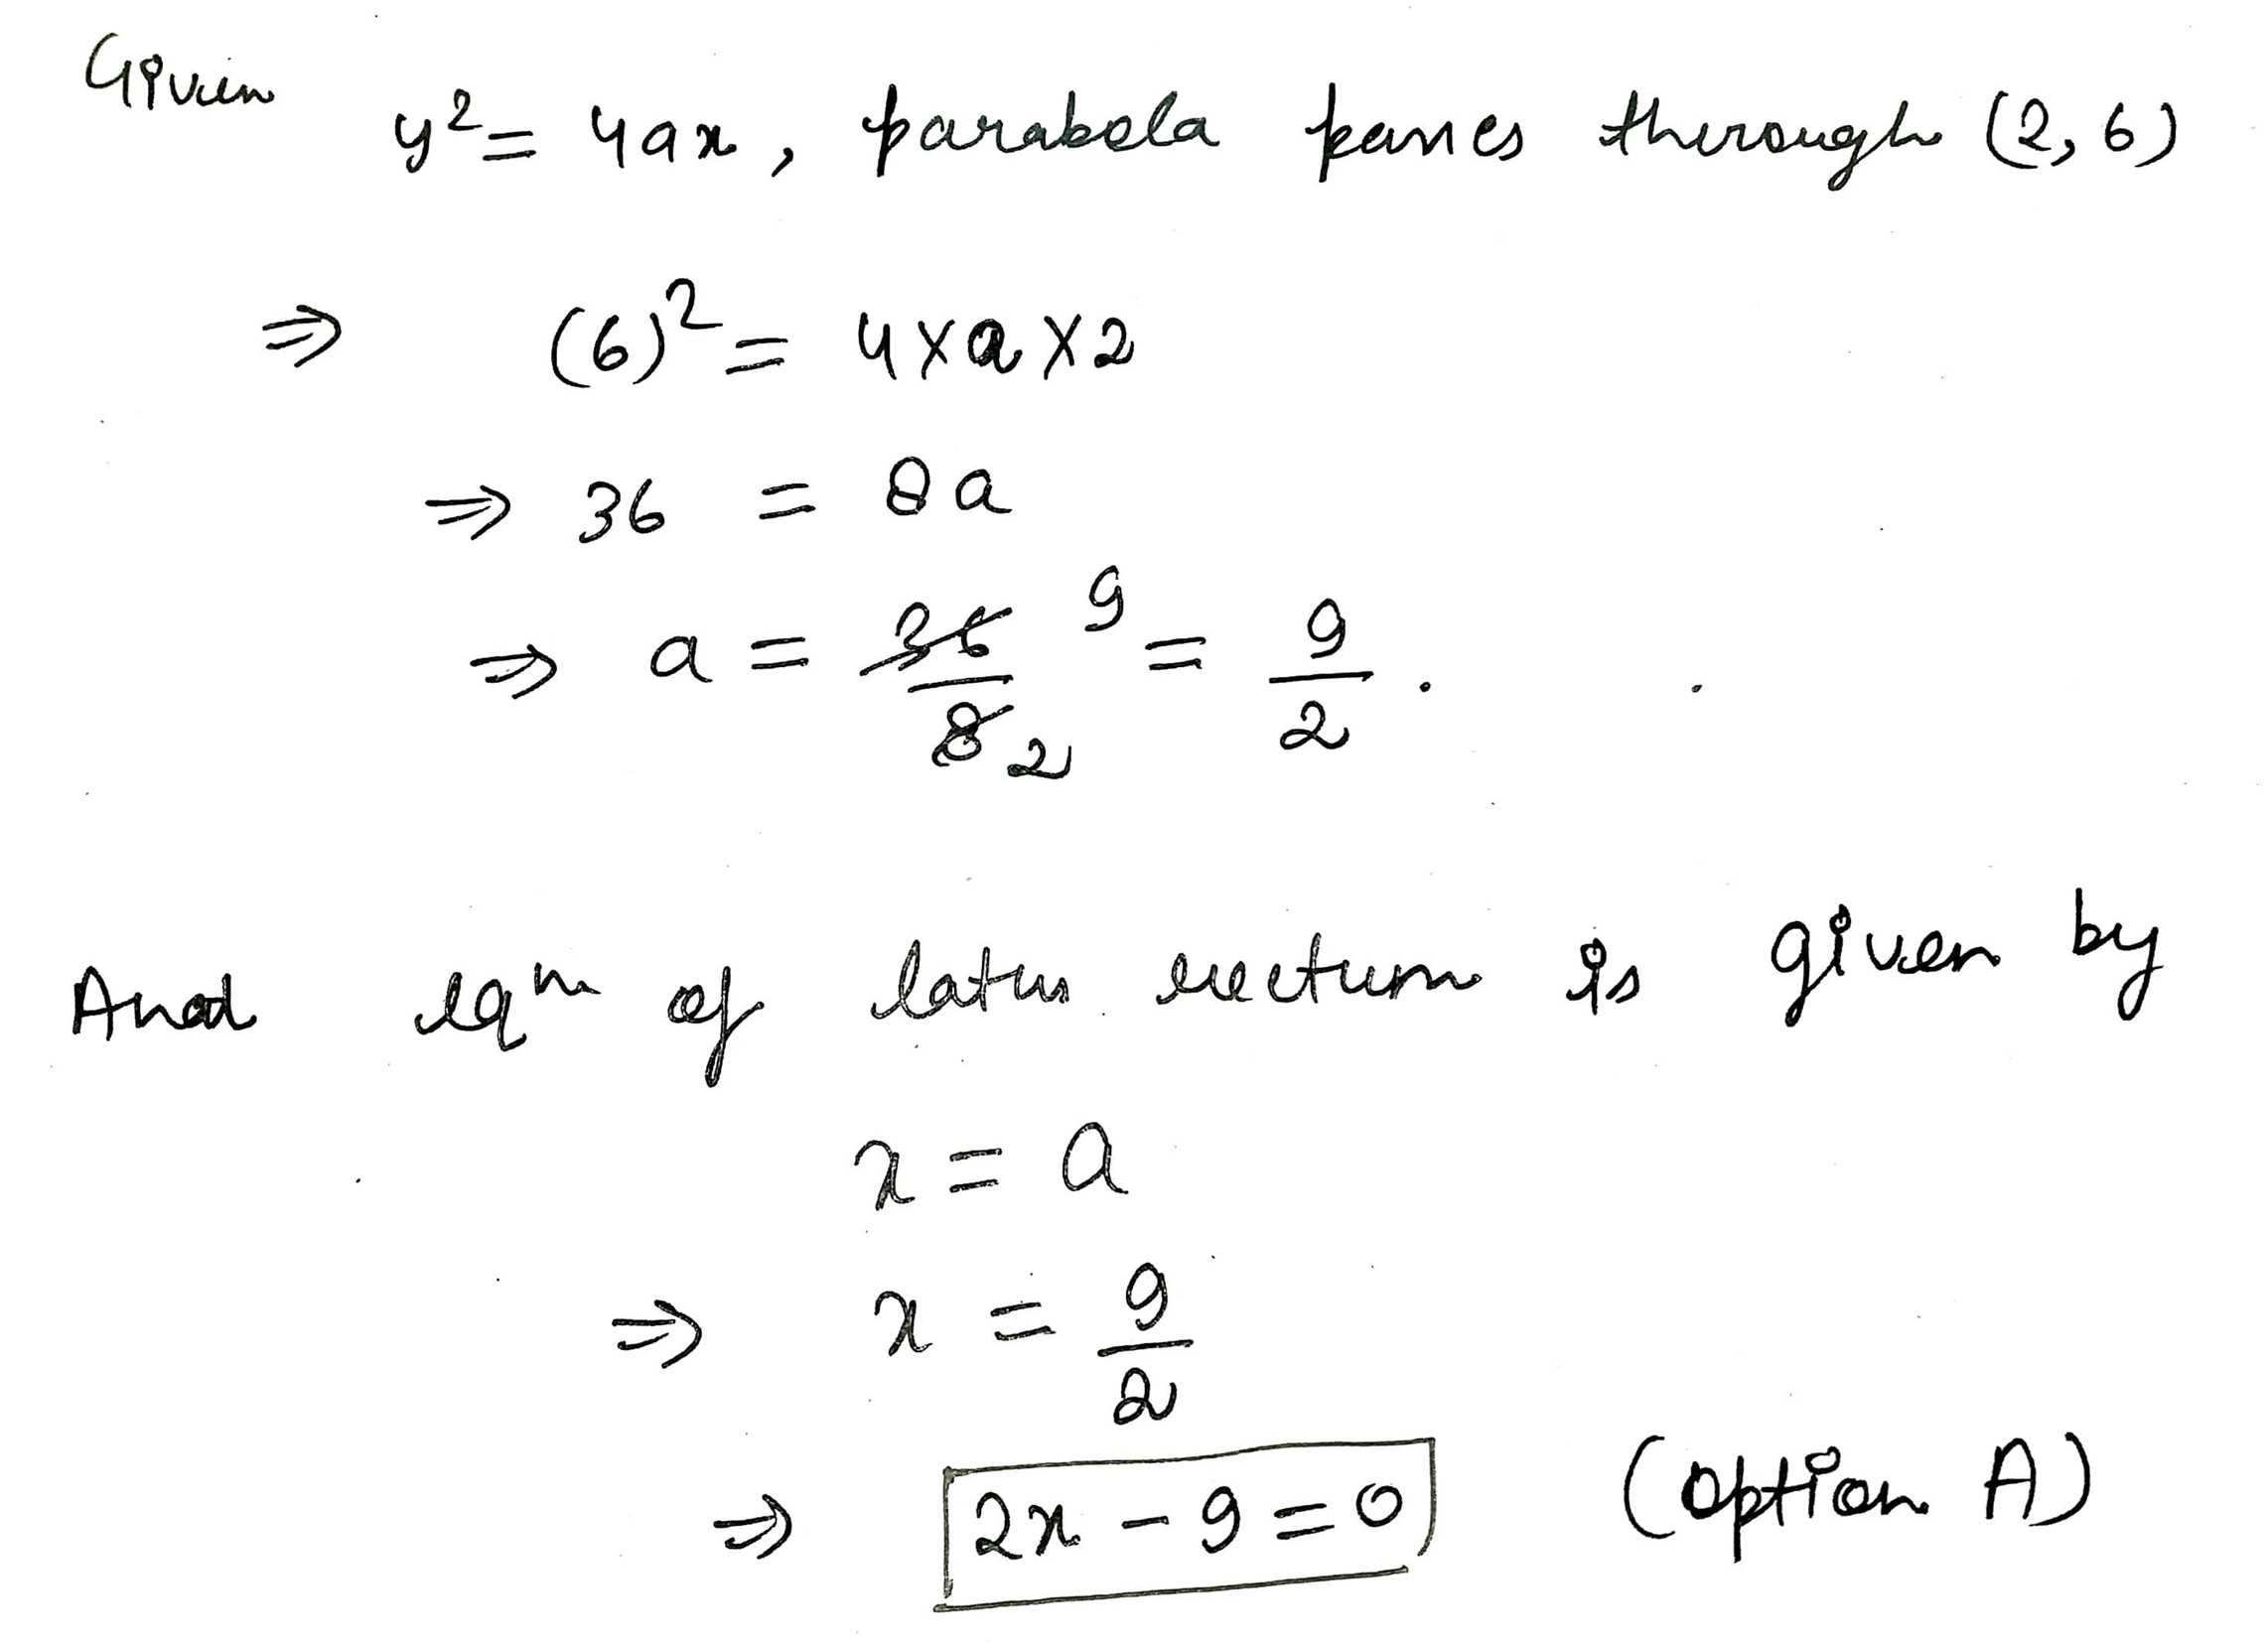 Given
y² = 4ax, parabola passes through (2, 6)
⇒ (6)² = 4×a×2
⇒ 36 = 8a
⇒ a = 36/8 9/2 = 9/2.
And eqn of latus rectum is given by
x = a
⇒ x = 9/2
⇒ 2x - 9 = 0 (option A)